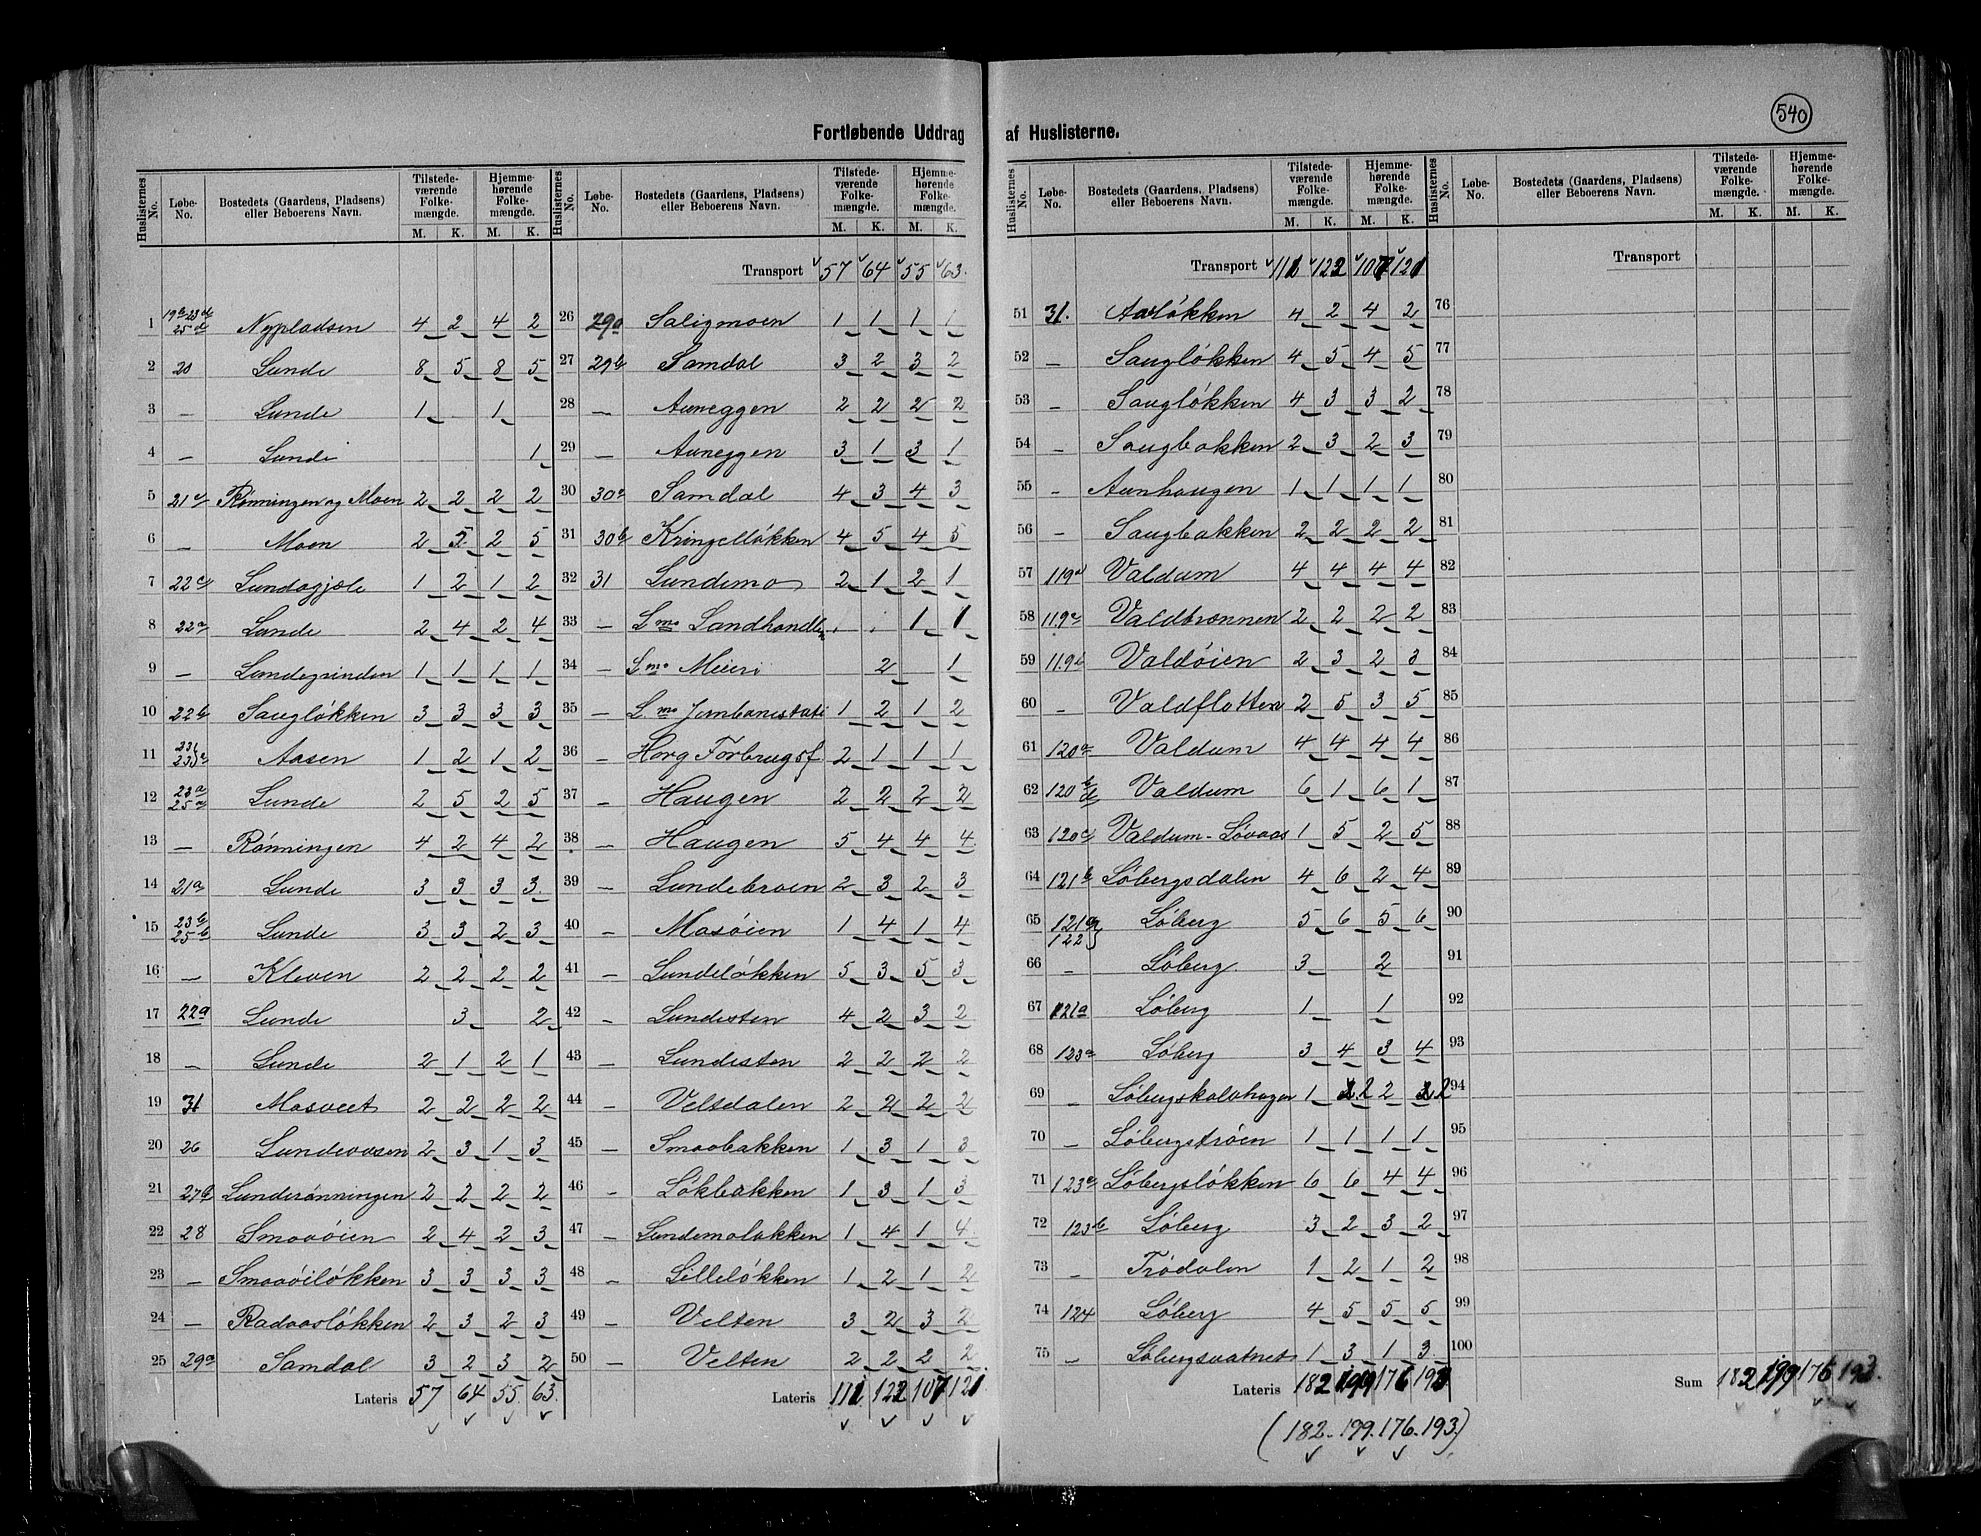 540
Fortløbende Uddrag af Huslisterne.
Huslisternes No. Løbe-No. Bostedets (Gaardens, Pladsens) eller Beboerens Navn. Tilstedeværende Folkemængde. M. K. Hjemmehørende Folkemængde. M. K.
1 Nypladsen 4 2 4 2
2 20 Lunde 8 5 8 5
3 — Lunde 1 1
4 — Lunde 1
5 21c Rønningen og Moen 2 2 2 2
6 — Moen 2 5 2 5
7 22c Lundagjøle 1 2 1 2
8 22a Lunde 2 4 2 4
9 — Lundegrinden 1 1 1 1
10 22b Sagløkken 3 3 3 3
11 Aasen 1 2 1 2
12 23a 25a Lunde 2 5 2 5
13 — Rønningen 4 2 4 2
14 21a Lunde 3 3 3 3
15 23b 25b Lunde 3 3 2 3
16 — Kleven 2 2 2 2
17 22a Lunde 3 2
18 — Lunde 2 1 2 1
19 31 Masveet 2 2 2 2
20 26 Lundeaasen 2 3 1 3
21 27b Lunderønningen 2 2 2 2
22 28 Smaaøien 2 4 2 3
23 — Smaaøiløkken 3 3 3 3
24 — Radaasløkken 2 3 2 3
25 29a Samdal 3 2 3 2
Lateris 57 64 55 63
Huslisternes No. Løbe-No. Bostedets (Gaardens, Pladsens) eller Beboerens Navn. Tilstedeværende Folkemængde. M. K. Hjemmehørende Folkemængde. M. K.
Transport 57 64 55 63
26 29a Saligmoen 1 1 1 1
27 29b Samdal 3 2 3 2
28 — Auneggen 2 2 2 2
29 — Auneggen 3 1 3 1
30 30a Samdal 4 3 4 3
31 30b Kringelløkken 4 5 4 5
32 31 Lundemo 2 1 2 1
33 — L.mo Landhandle 1 1
34 — L.mo Meieri 2 1
35 — L.mo Jernbanestati 1 2 1 2
36 — Horg Forbrugsf. 2 1 1 1
37 — Haugen 2 2 2 2
38 — Haugen 5 4 4 4
39 — Lundebroen 2 3 2 3
40 — Masøien 1 4 1 4
41 — Lundeløkken 5 3 5 3
42 — Lundesten 4 2 3 2
43 — Lundesten 2 2 2 2
44 — Veltdalen 2 2 2 2
45 — Smaabakken 1 3 1 3
46 — Løkbakken 1 3 1 3
47 — Lundemoløkken 1 4 1 4
48 — Lilleløkken 1 2 1 2
49 — Velten 3 2 3 2
50 — Velten 2 2 2 2
Lateris 111 122 107 121
Huslisternes No. Løbe-No. Bostedets (Gaardens, Pladsens) eller Beboerens Navn. Tilstedeværende Folkemængde. M. K. Hjemmehørende Folkemængde. M. K.
Transport 111 122 107 121
51 31. Aasløkken 4 2 4 2
52 — Saugløkken 4 5 4 5
53 — Saugløkken 4 3 3 2
54 — Saugbakken 2 3 2 3
55 — Aunhaugen 1 1 1 1
56 — Saugbakken 2 2 2 2
57 119a Valdum 4 4 4 4
58 119c Valdbrønnen 2 2 2 2
59 119b Valdøien 2 3 2 3
60 — Valdflotten 2 5 3 5
61 120a Valdum 4 4 4 4
62 120 b d Valdum 6 1 6 1
63 120c Valdum-Løvaas 1 5 2 5
64 121b Løbergsdalen 4 6 2 4
65 121a 122 Løberg 5 6 5 6
66 — Løberg 3 2
67 121a Løberg 1 1
68 123a Løberg 3 4 3 4
69 — Løbergskolehagen 1 2 2 2
70 — Løbergstrøen 1 1 1 1
71 123c Løbergsløkken 6 6 4 4
72 123b Løberg 3 2 3 2
73 — Trødalen 1 2 1 2
74 124 Løberg 4 5 5 5
75 — Løbergsvatnet 1 3 1 3
Lateris 182 199 176 193
(182. 199. 176. 193.)
Huslisternes No. Løbe-No. Bostedets (Gaardens, Pladsens) eller Beboerens Navn. Tilstedeværende Folkemængde. M. K. Hjemmehørende Folkemængde. M. K.
Transport
76
77
78
79
80
81
82
83
84
85
86
87
88
89
90
91
92
93
94
95
96
97
98
99
100
Sum 182 199 176 193.